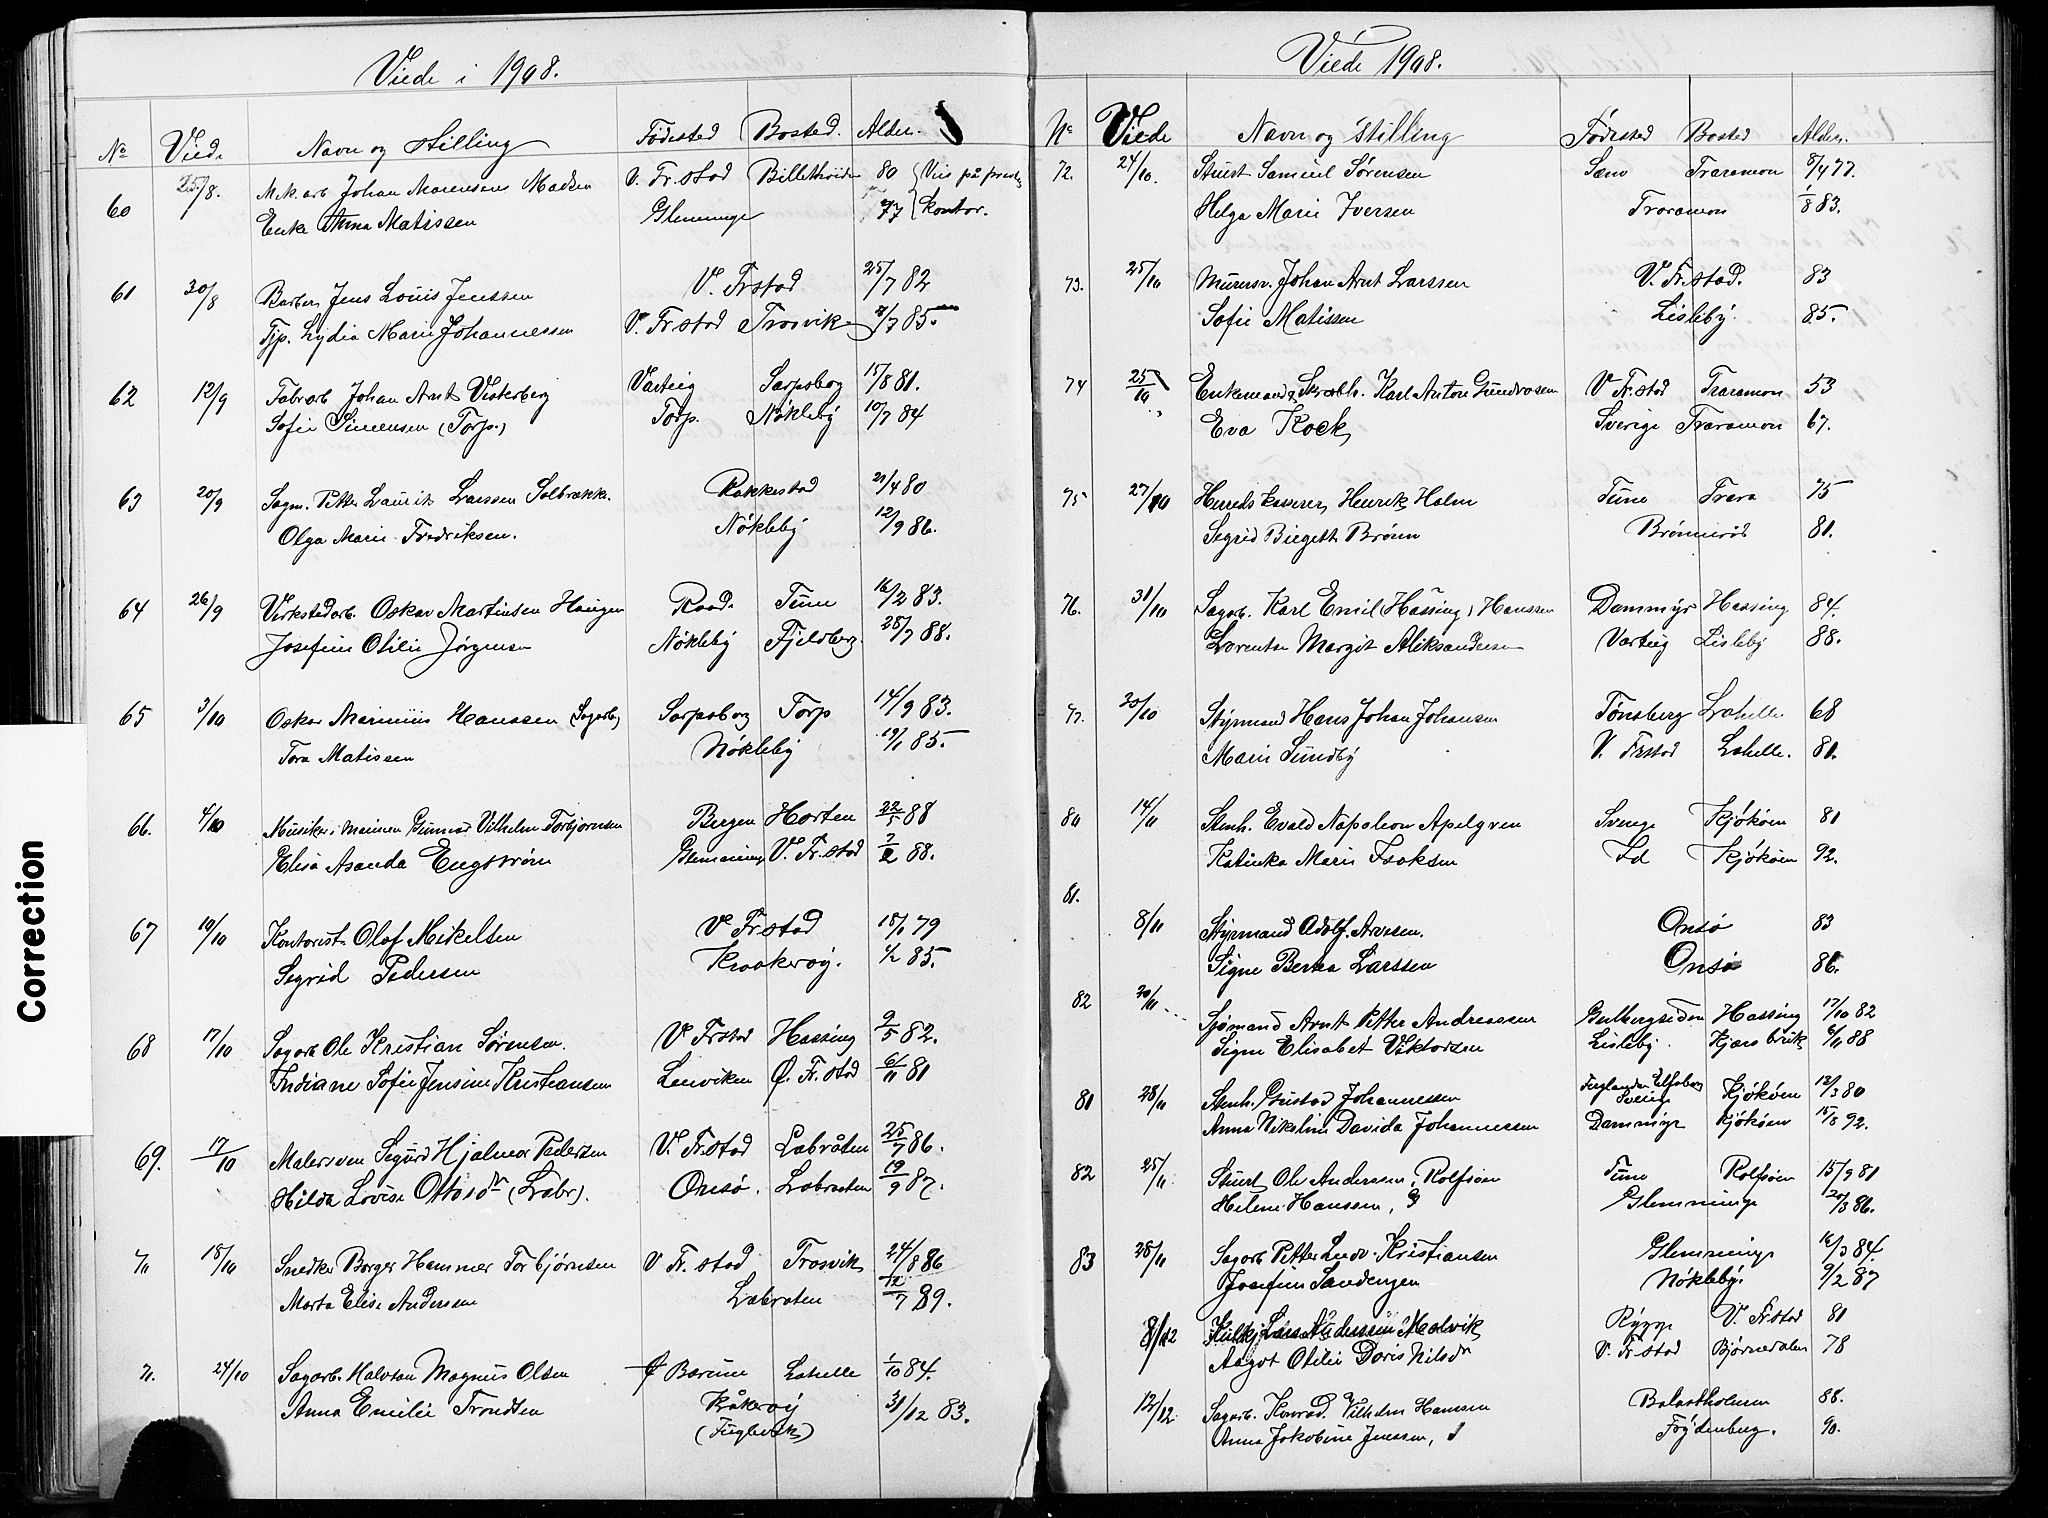 Correction
Viede i 1908.
No Vied. Navn og Stilling Fødested Bosted. Alder.
25/8. Mek. arb. Johan Marensens Madsen V. Fr.stad 80 Vies på
60 Enke Anna Matissen Glemminge 77 kontor.
61 30/8 Barber Jens Louis Jenssen V. Frstad 25/7 82
Tjp. Lydia Marie Johannessen V. Fr.stad Trosvik 7 85.
62 12/9 Fabr.arb Johan Arnt Vesterberg Varteig Sarpsborg 15/8 81.
Sofie Simensen (Torp.) Torp. Nökleby 10/7 84
63 20/9 Sagm. Petter Laurits Larssen Solbrække. Rakkestad 21/4 80
Olga Marie Fredriksen. Nökleby 12/9 86.
64 26/9 Verkstedarb. Oskar Martinsen Haugen Raade Tune 16/2 83.
Josefine Otilie Jørgensen Nökleby Fjeldberg. 28/7 88.
65 3/10 Oskar Marinius Hanssen (Sagarb) Sarpsborg Torp 14/9 83.
Tora Matissen Nökleby 19/1 85.
66. 4/10 Musiker i marinen Gunnar Vilhelm Torbjørnsen Bergen Horten 22/5 88
Elisa Asanda Engstrøm Glemminge V. Fr.stad 2/2 88.
67 10/10 Kontorist Olaf Mikelsen V Fr.stad 18/1 79
Sigrid Pedersen Kraakerøy. 1/2 85.
68 17/10 Sagarb Ole Kristian Sørensen. V. Frstad Hassing 9/5 82.
Indiane Sofie Jensine Kristiansen Lerviken Ø. Fr.stad 6/11 81
69. 17/10 Malersven Sigurd Hjalmar Pedersen V. Fr.stad Labråten 25/7 86.
Hilda Lovise Ottosdr (Labr). Onsø. Labraaten 19/9 87.
18/10 Snedker Borger Hammer Torbjørnsen V Fr.stad Trosvik 24/8 86
Marta Elise Anderssen Labraten 12/7 89.
71. 24/10 Sagarb. Halvtan Magnus Olsen Ø Borum Lahelle 1/10 84.
Anna Emilie Trondsen Kråkerøy 31/12 83.
(Fuglevik)
Viede 1908.
No Viede Navn og Stilling Fødested Bosted Alder.
72. 24/10. Stuert Samuel Sørensen Traramon 8/4 77.
Helga Marie Iversen Traramon 1/8 83.
73. 25/10 Murersv. Johan Arnt Larssen V. Fr.stad. 83
Sofie Matissen Lisleby. 85.
74 25/10 Enkemand Karl Anton Gundersen V Fr.stad Traramon 53
Eva Kock Sverige Traramon 67.
75 27/10 Herredskasserer Henrik Holm Tune Trara 75
Sigrid Birgitte Brønn Brønnerød 81.
76. 31/10 Sagarb. Karl Emil (Hassing) Hanssen Dammyr Hassing 84.
Lorentse Margit Aleksandersen Varteig Lisleby 88.
77. 30/10 Styrmand Hans Johan Johansen Tønsberg Lahelle 68
Marie Sundby V. Frstad Lahelle. 80.
80 14/11 Stenh. Evald Napoleon Apelgren Sverige Kjøkøen 81
Katinka Marie Isaksen Id Kjøkøen 92.
81.
8/11 Styrmand Adolf Arvesen. Onsø 83
Signe Berna Larssen Onsø 86.
82 20/11 Sjømand Arnt Petter Andreassen Gulbergsiden Hassing 17/10 82
Signe Elisabet Viktorsen Lisleby. Kjærs bruk 6/11 88
81 28/11 Stenh. Gustav Johannessen Elfsborg Sverige Kjøkøen 12/3 80
Anna Nikoline Davida Johannessen Dammyr Kjøkøen 15/8 92.
82 25/11 Stuert Ole Anderssen, Rolfsøen Tune Rolfsøen 15/9 81
Helene Hanssen, Glemminge 20/3 86.
83 28/11 Sagarb Petter Ludv. Kristiansen Glemminge 16/3 84.
Josefine Sandengen Nökleby. 9/2 87
8/12 Lars Anderssen Malvik Rygge V. Fr.stad 81
Aagot Otilie Doris Nilsdr V. Fr.stad Bjørnedalen 78
12/12 Sagarb. Konrad Vilhelm Hanssen Balastholmen 88.
Anna Jakobine Jenssen, Frydenberg. 90.